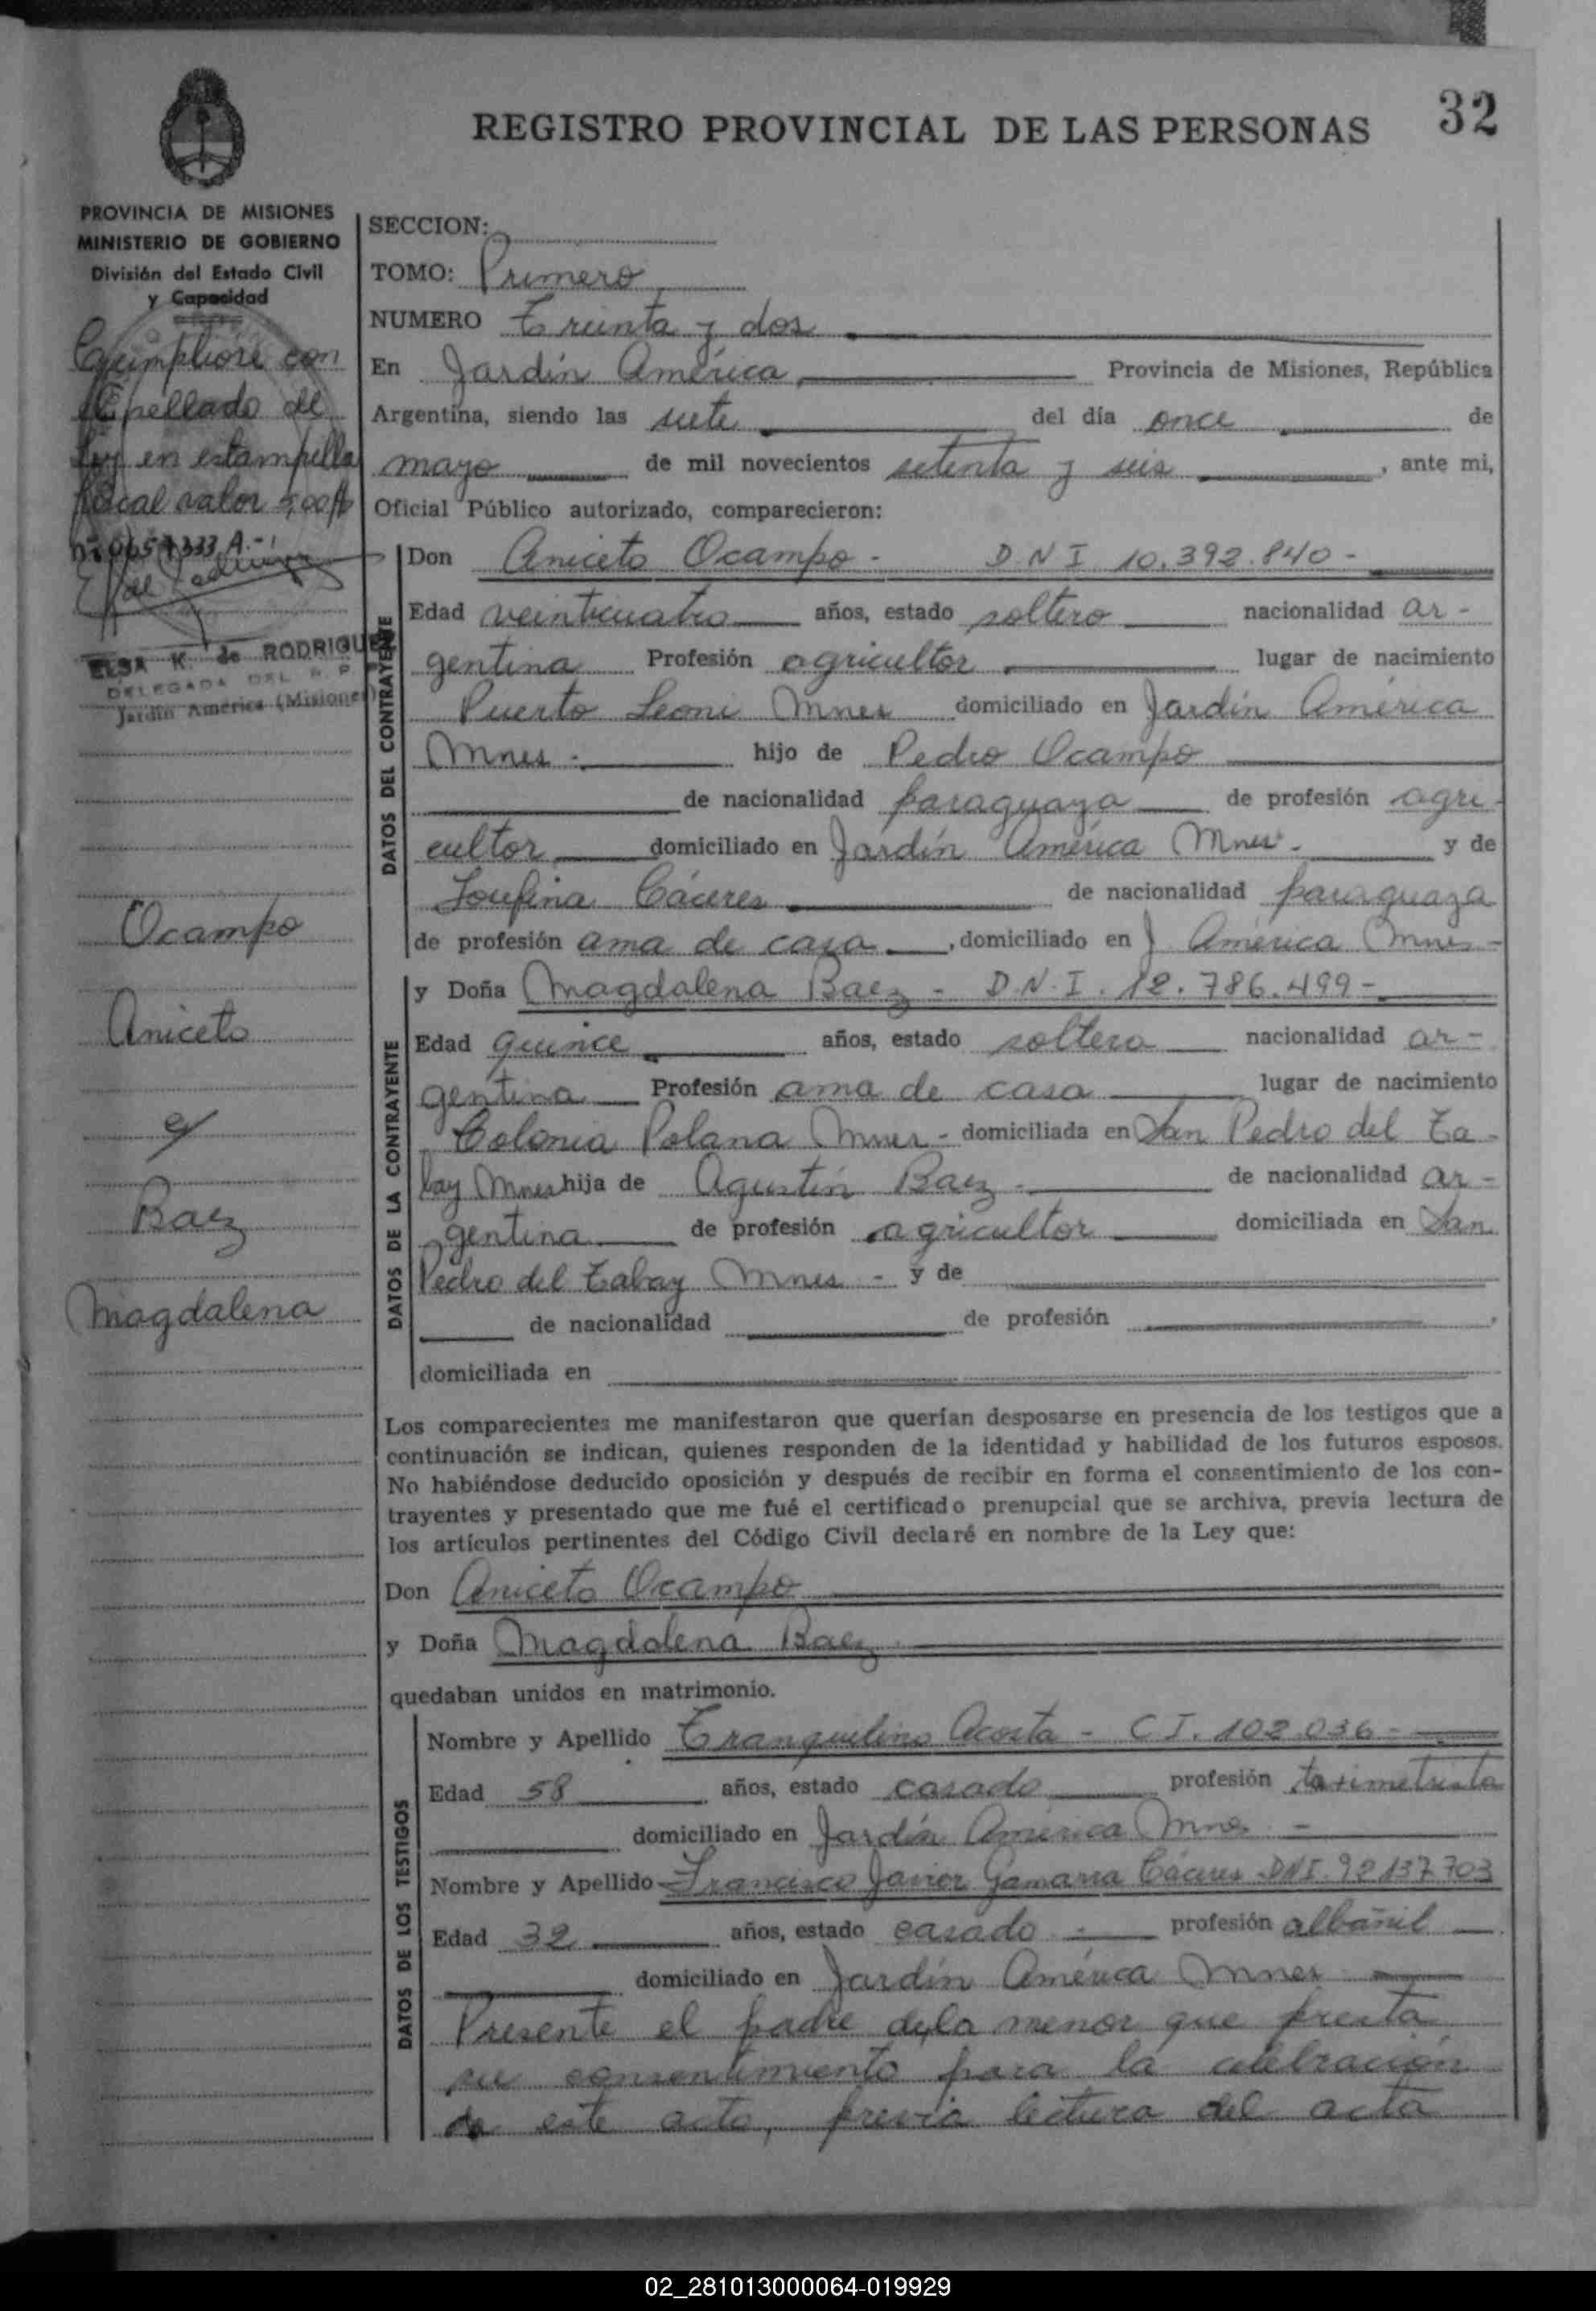 32
REGISTRO PROVINCIAL DE LAS PERSONAS
PROVINCIA DE MISIONES
MINISTERIO DE GOBIERNO
División del Estado Civil
y Capacidad
con
pellado de
ley en estampilla
fiscal valor
ELSA K. de RODRIGUEZ
DELEGADA DEL R. P.
Jardín América (Misiones)
Ocampo
Aniceto
y
Baez
Magdalena
SECCION:
TOMO: Primero
NUMERO Treinta y dos
En Jardín América, Provincia de Misiones, República
Argentina, siendo las siete del día once de
mayo de mil novecientos setenta y seis, ante mi,
Oficial Público autorizado, comparecieron:
DATOS DEL CONTRAYENTE
Don Aniceto Ocampo - D.N.I. 10.392.840 -
Edad veinticuatro años, estado soltero nacionalidad ar-
gentina Profesión agricultor lugar de nacimiento
Puerto Leoni Mnes domiciliado en Jardín América
Mnes. hijo de Pedro Ocampo
de nacionalidad paraguaya de profesión agri-
cultor domiciliado en Jardín América Mnes - y de
Cáceres de nacionalidad paraguaya
de profesión ama de casa, domiciliado en J América Mnes-
DATOS DE LA CONTRAYENTE
y Doña Magdalena Baez - D.N.I. 12.786.499-
Edad quince años, estado soltera nacionalidad ar-
gentina Profesión ama de casa lugar de nacimiento
Colonia Polana Mnes - domiciliada en San Pedro del Ta-
bay Mnes hija de Agustín Baez - de nacionalidad ar-
gentina de profesión agricultor domiciliada en San
Pedro del Tabay Mnes - y de
de nacionalidad de profesión ,
domiciliada en
Los comparecientes me manifestaron que querían desposarse en presencia de los testigos que a
continuación se indican, quienes responden de la identidad y habilidad de los futuros esposos.
No habiéndose deducido oposición y después de recibir en forma el consentimiento de los con-
trayentes y presentado que me fué el certificado prenupcial que se archiva, previa lectura de
los artículos pertinentes del Código Civil declaré en nombre de la Ley que:
Don Aniceto Ocampo
y Doña Magdalena Baez
quedaban unidos en matrimonio.
DATOS DE LOS TESTIGOS
Nombre y Apellido Tranquilino Acosta - C.I. 102.036 -
Edad 58 años, estado casado profesión taximetrista
domiciliado en Jardín América Mnes -
Nombre y Apellido Francisco Javier Gamarra Cáceres DNI. 92.137.703
Edad 32 años, estado casado - profesión albañil
domiciliado en Jardín América Mnes
Presente el padre de la menor que presta
su consentimiento para la celebración
de este acto, previa lectura del acta
02_281013000064-019929